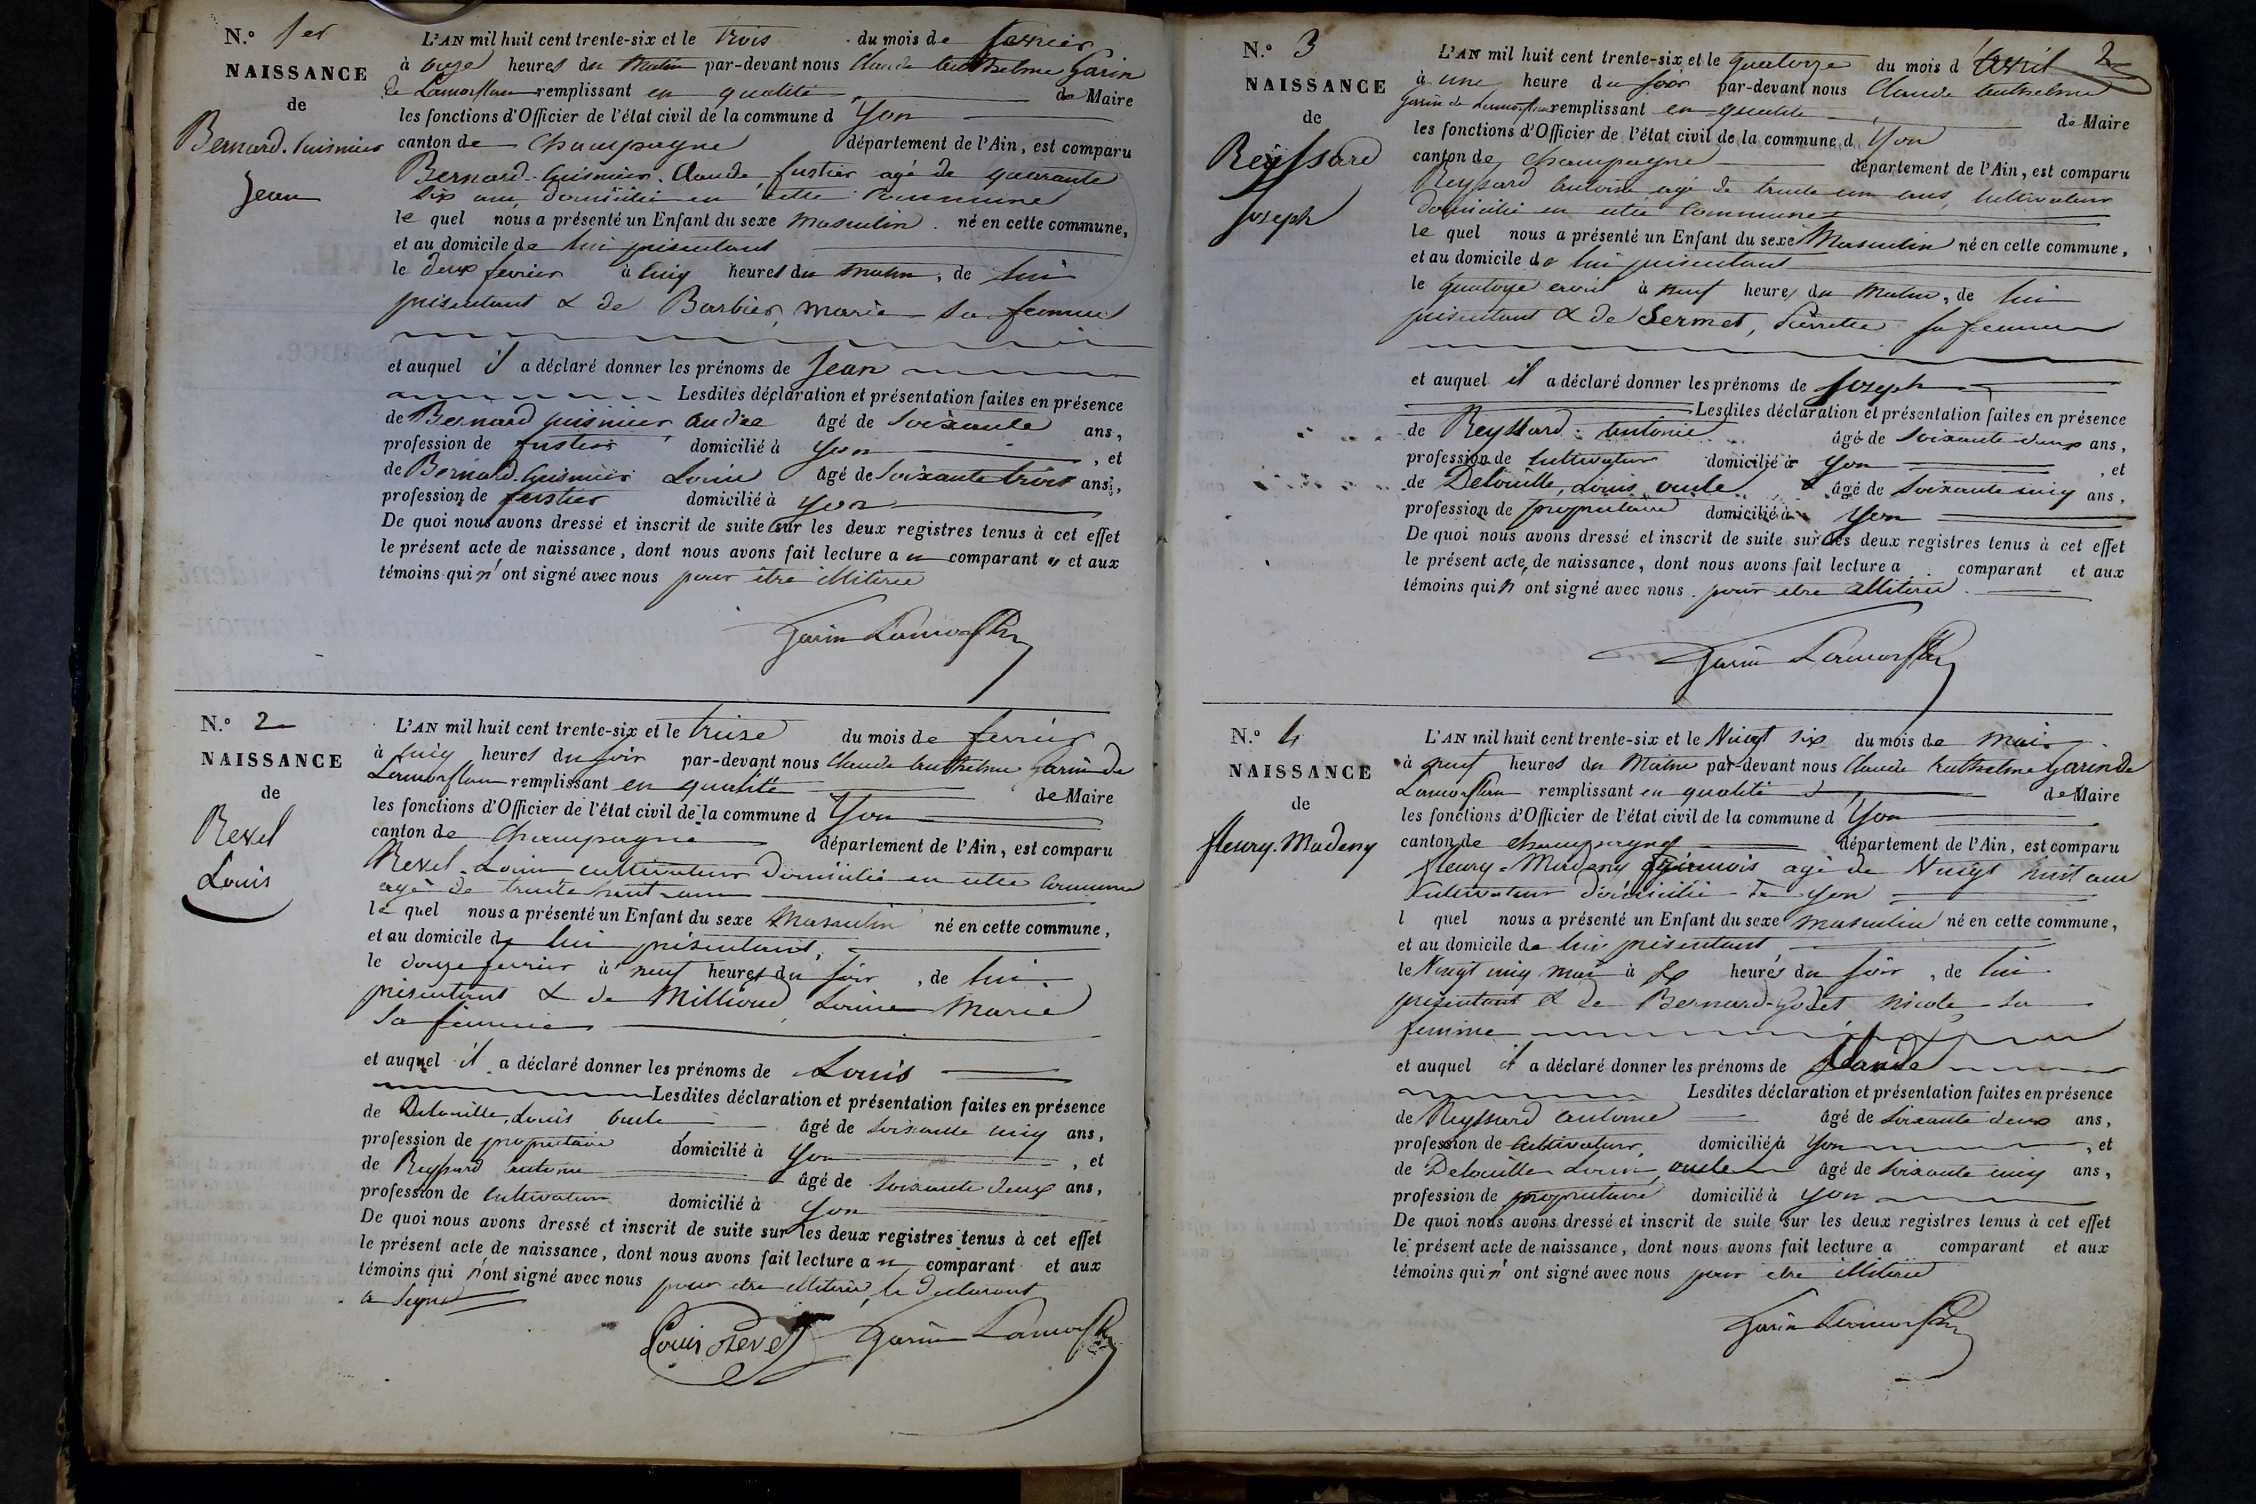 N.° 1er
NAISSANCE
de
Bernard. Cuisinier
Jean
L'AN mil huit cent trente-six et le trois du mois de fevrier
à onze heures du matin par-devant nous Claude Anthelme Garin
de Lamorflan remplissant en qualité de Maire
les fonctions d'Officier de l'état civil de la commune d Yon
canton de Champagne département de l'Ain, est comparu
Bernard-Cuisinier Claude fustier agé de quarante
six ans, domicilié en cette commune
le quel nous a présenté un Enfant du sexe Masculin né en cette commune,
et au domicile de lui présentant
le deux fevrier à cinq heures du matin, de lui
présentant & de Barbier, marie sa femme
et auquel il a déclaré donner les prénoms de Jean
Lesdites déclaration et présentation faites en présence
de Bernard Cuisinier andré âgé de soixante ans,
profession de fustier domicilié à yon, et
de Bernard-Cuisinier Louis âgé de soixante trois ans,
profession de fustier domicilié à yon
De quoi nous avons dressé et inscrit de suite sur les deux registres tenus à cet effet
le présent acte de naissance, dont nous avons fait lecture a u comparant et aux
témoins qui n'ont signé avec nous pour être illitéré
Garin Lamorflan
N.° 2
NAISSANCE
de
Revel
Louis
L'AN mil huit cent trente-six et le treise du mois de fevrier
à cinq heures du soir par-devant nous Claude Anthelme Garin de
Lamorflan remplissant en qualité de Maire
les fonctions d'Officier de l'état civil de la commune d Yon
canton de Champagne département de l'Ain, est comparu
Revel Louis cultivateur domicilié en cette commune
agé de trente huit ans
le quel nous a présenté un Enfant du sexe Masculin né en cette commune,
et au domicile de lui présentant,
le douze fevrier à neuf heures du soir, de lui
présentant & de Millioud, Louise Marie
sa femme
et auquel il a déclaré donner les prénoms de Louis
Lesdites déclaration et présentation faites en présence
de Delouille, Louis oncle âgé de soixante cinq ans,
profession de propriétaire domicilié à Yon, et
de Reyssard antoine âgé de soixante deux ans,
profession de cultivateur domicilié à Yon
De quoi nous avons dressé et inscrit de suite sur les deux registres tenus à cet effet
le présent acte de naissance, dont nous avons fait lecture a u comparant et aux
témoins qui n'ont signé avec nous pour etre illitéré, le declarant
a signé
Louis Revel Garin Lamorflan
2
N.° 3
NAISSANCE
de
Reyssard
Joseph
L'AN mil huit cent trente-six et le quatorze du mois d'avril
à une heure du soir par-devant nous Claude Anthelme
Garin de Lamorflan remplissant en qualité de Maire
les fonctions d'Officier de l'état civil de la commune d Yon
canton de Champagne département de l'Ain, est comparu
Reyssard Antoine agé de trente un ans, cultivateur
domicilié en cette commune
le quel nous a présenté un Enfant du sexe Masculin né en cette commune,
et au domicile de lui présentant
le quatorze avril à neuf heures du matin, de lui
présentant & de Sermet, Pierrette sa femme
et auquel il a déclaré donner les prénoms de Joseph
Lesdites déclaration et présentation faites en présence
de Reyssard Antoine âgé de soixante deux ans,
profession de cultivateur domicilié à Yon, et
de Delouille, Louis oncle âgé de soixante cinq ans,
profession de propriétaire domicilié à Yon
De quoi nous avons dressé et inscrit de suite sur les deux registres tenus à cet effet
le présent acte de naissance, dont nous avons fait lecture a comparant et aux
témoins qui n'ont signé avec nous pour etre illitéré
Garin Lamorflan
N.° 4
NAISSANCE
de
fleury. Madeny
L'AN mil huit cent trente-six et le Vingt six du mois de Mai
à neuf heures du Matin par-devant nous Claude Anthelme Garin de
Lamorflan remplissant en qualité de Maire
les fonctions d'Officier de l'état civil de la commune d Yon
canton de champagne département de l'Ain, est comparu
fleury-Madeny françois agé de Vingt huit ans
cultivateur domicilié à yon
l quel nous a présenté un Enfant du sexe masculin né en cette commune,
et au domicile de lui présentant
le Vingt cinq mai à six heures du soir, de lui
présentant & de Bernard-Godet nicole sa
femme
et auquel il a déclaré donner les prénoms de Claude
Lesdites déclaration et présentation faites en présence
de Reyssard antoine âgé de soixante deux ans,
profession de cultivateur, domicilié à Yon, et
de Delouille Louis, oncle âgé de soixante cinq ans,
profession de propriétaire domicilié à yon
De quoi nous avons dressé et inscrit de suite sur les deux registres tenus à cet effet
le présent acte de naissance, dont nous avons fait lecture a comparant et aux
témoins qui n'ont signé avec nous pour etre illitéré
Garin Lamorflan